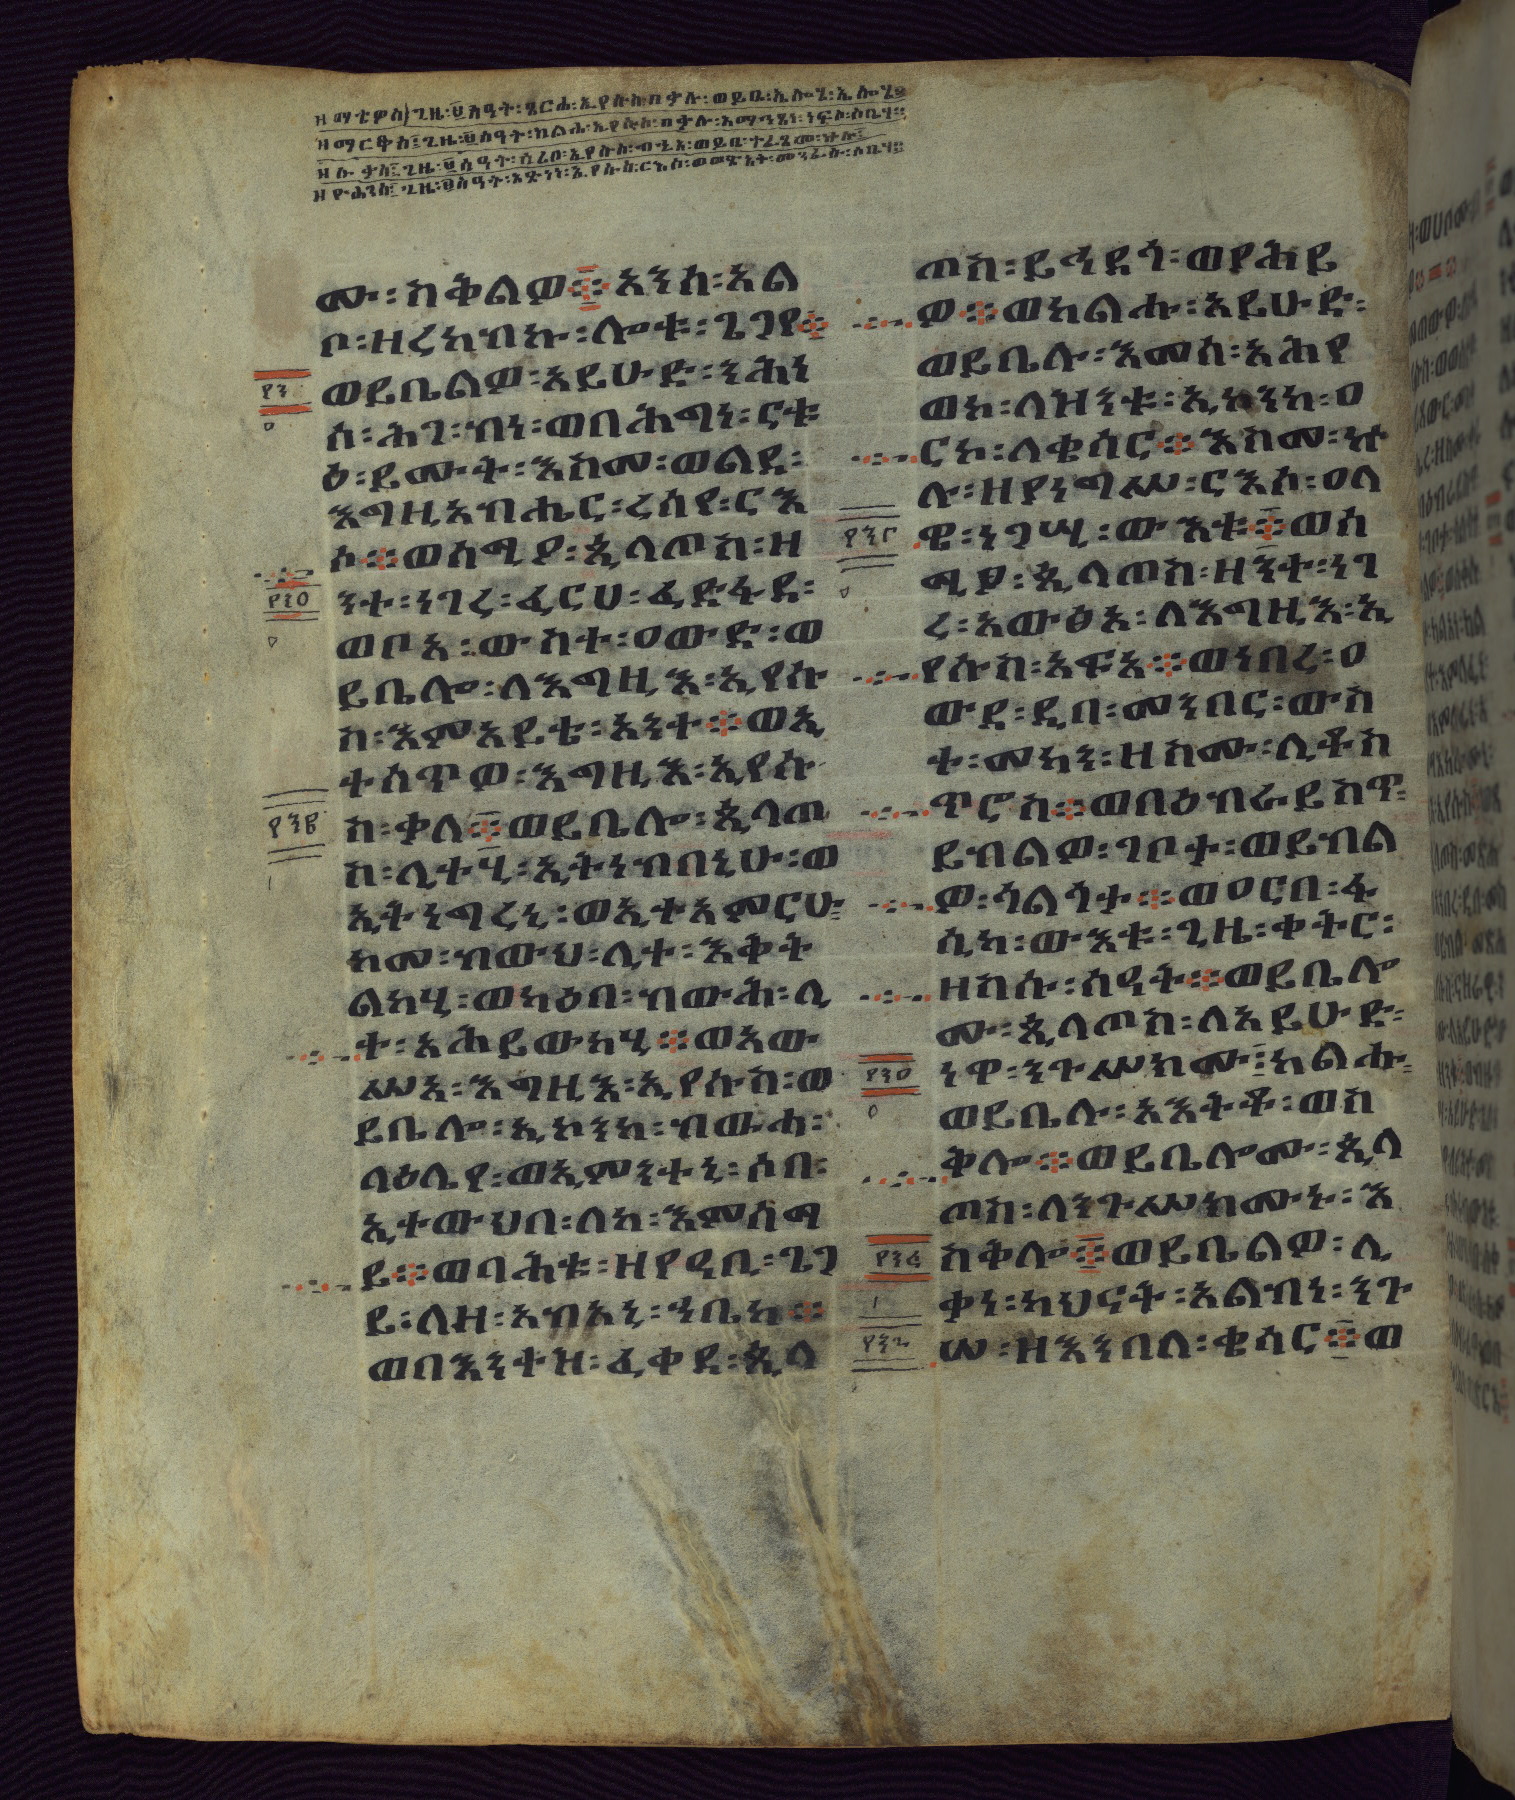 ዘማቴዎስ፤ጊዜ፡፱ሰዓት፡ጸርሐ፡ኢየሱስ፡በቃሉ፡ወይቤ፡ኤሎሄ፡ኤሎሄ፡፡
ዘማርቆስ፤ጊዜ፡፱ሰዓት፡ከልሐ፡ኢየሱስ፡በቃሉ፡አማኅፀነ፡ነፍሶ፡ሶቤሃ፡፡
ዘሉቃስ፤ጊዜ፡፱ሰዓት፡ሰረበ፡ኢየሱስ፡ብሂአ፡ወይቤ፡ተፈጸመ፡ኵሉ፡
ዘዮሐንስ፤ጊዜ፡፱ሰዓት፡አድነነ፡ኢየሱስ፡ርእሶ፡ወመጽአት፡መንፈሱ፡ሶቤሃ፡፡
ሙ፡ስቅልዎ፨አንሰ፡አል
ቦ፡ዘረከብኩ፡ሎቱ፡ጌጋየ፨
ወይቤልዎ፡አይሁድ፡ንሕነ
ሰ፡ሕገ፡ብነ፡ወበሕግነ፡ርቱ
ዕ፡ይሙት፡እስመ፡ወልደ፡
እግዚአብሔር፡ረሰየ፡ርእ
ሶ፨ወሰሚዖ፡ጲላጦስ፡ዘ
ንተ፡ነገረ፡ፈርህ፡ፈድፋደ፡
ወቦአ፡ውስተ፡ዐውድ፡ወ
ይቤሎ፡ለእግዚእ፡ኢየሱ
ስ፡እምአይቴ፡አንተ፨ወኢ
ተሰጥዎ፡እግዚእ፡ኢየሱ
ስ፡ቃለ፨ወይቤሎ፡ጲላጦ
ስ፡ሊተሂ፡ኢትነብበኒሁ፡ወ
ኢትነግረኒ፡ወኢተአምርሁ፡
ከመ፡ብውህ፡ሊተ፡እቅት
ልከሂ፡ወካዕበ፡ብውሕ፡ሊ
ተ፡አሕይውከሂ፨ወአው
ሥአ፡እግዚእ፡ኢየሱስ፡ወ
ይቤሎ፡ኢኮንከ፡ብዉሐ፡
ላዕሌየ፡ወኢምንተኒ፡ሶበ፡
ኢተውህበ፡ለከ፡እምሰማ
ይ፨ወባሕቱ፡ዘየዓቢ፡ጌጋ
ይ፡ለዘ፡አብአኒ፡ኀቤከ፨
ወበእንተዝ፡ፈቀደ፡ጲላ
ጦስ፡ይኅድጎ፡ወየሕይ
ዎ፨ወከልሑ፡አይሁድ፡
ወይቤሉ፡እመሰ፡አሕየ
ወከ፡ለዝንቱ፡ኢኮንከ፡ዐ
ርከ፡ለቄሳር፨እስመ፡ኵ
ሉ፡ዘያነግሥ፡ርእሶ፡ዐለ
ዌ፡ነጋሢ፡ውእቱ፨ወሰ
ሚዖ፡ጲላጦስ፡ዘንተ፡ነገ
ረ፡አውፅአ፡ለእግዚእ፡ኢ
የሱስ፡አፍአ፨ወነበረ፡ዐ
ውደ፡ዲበ፡መንበር፡ውስ
ተ፡መካን፡ዘስሙ፡ሊቶስ
ጥሮስ፨ወበዕብራይስጥ፡
ይብልዎ፡ገቦታ፡ወይብል
ዎ፡ጎልጎታ፨ወዐርበ፡ፋ
ሲካ፡ውእቱ፡ጊዜ፡ቀትር፡
ዘስሱ፡ሰዓት፨ወይቤሎ
ሙ፡ጲላጦስ፡ለአይሁድ፡
ነዋ፡ንጉሥክሙ፨ከልሑ፡
ወይቤሉ፡አእትቶ፡ወስ
ቅሎ፨ወይቤሎሙ፡ጲላ
ጦስ፡ለንጉሥክሙኑ፡እ
ስቅሎ፨ወይቤልዎ፡ሊ
ቃነ፡ካህናት፡አልብነ፡ንጉ
ሠ፡ዘእንበለ፡ቄሳር፨ወ